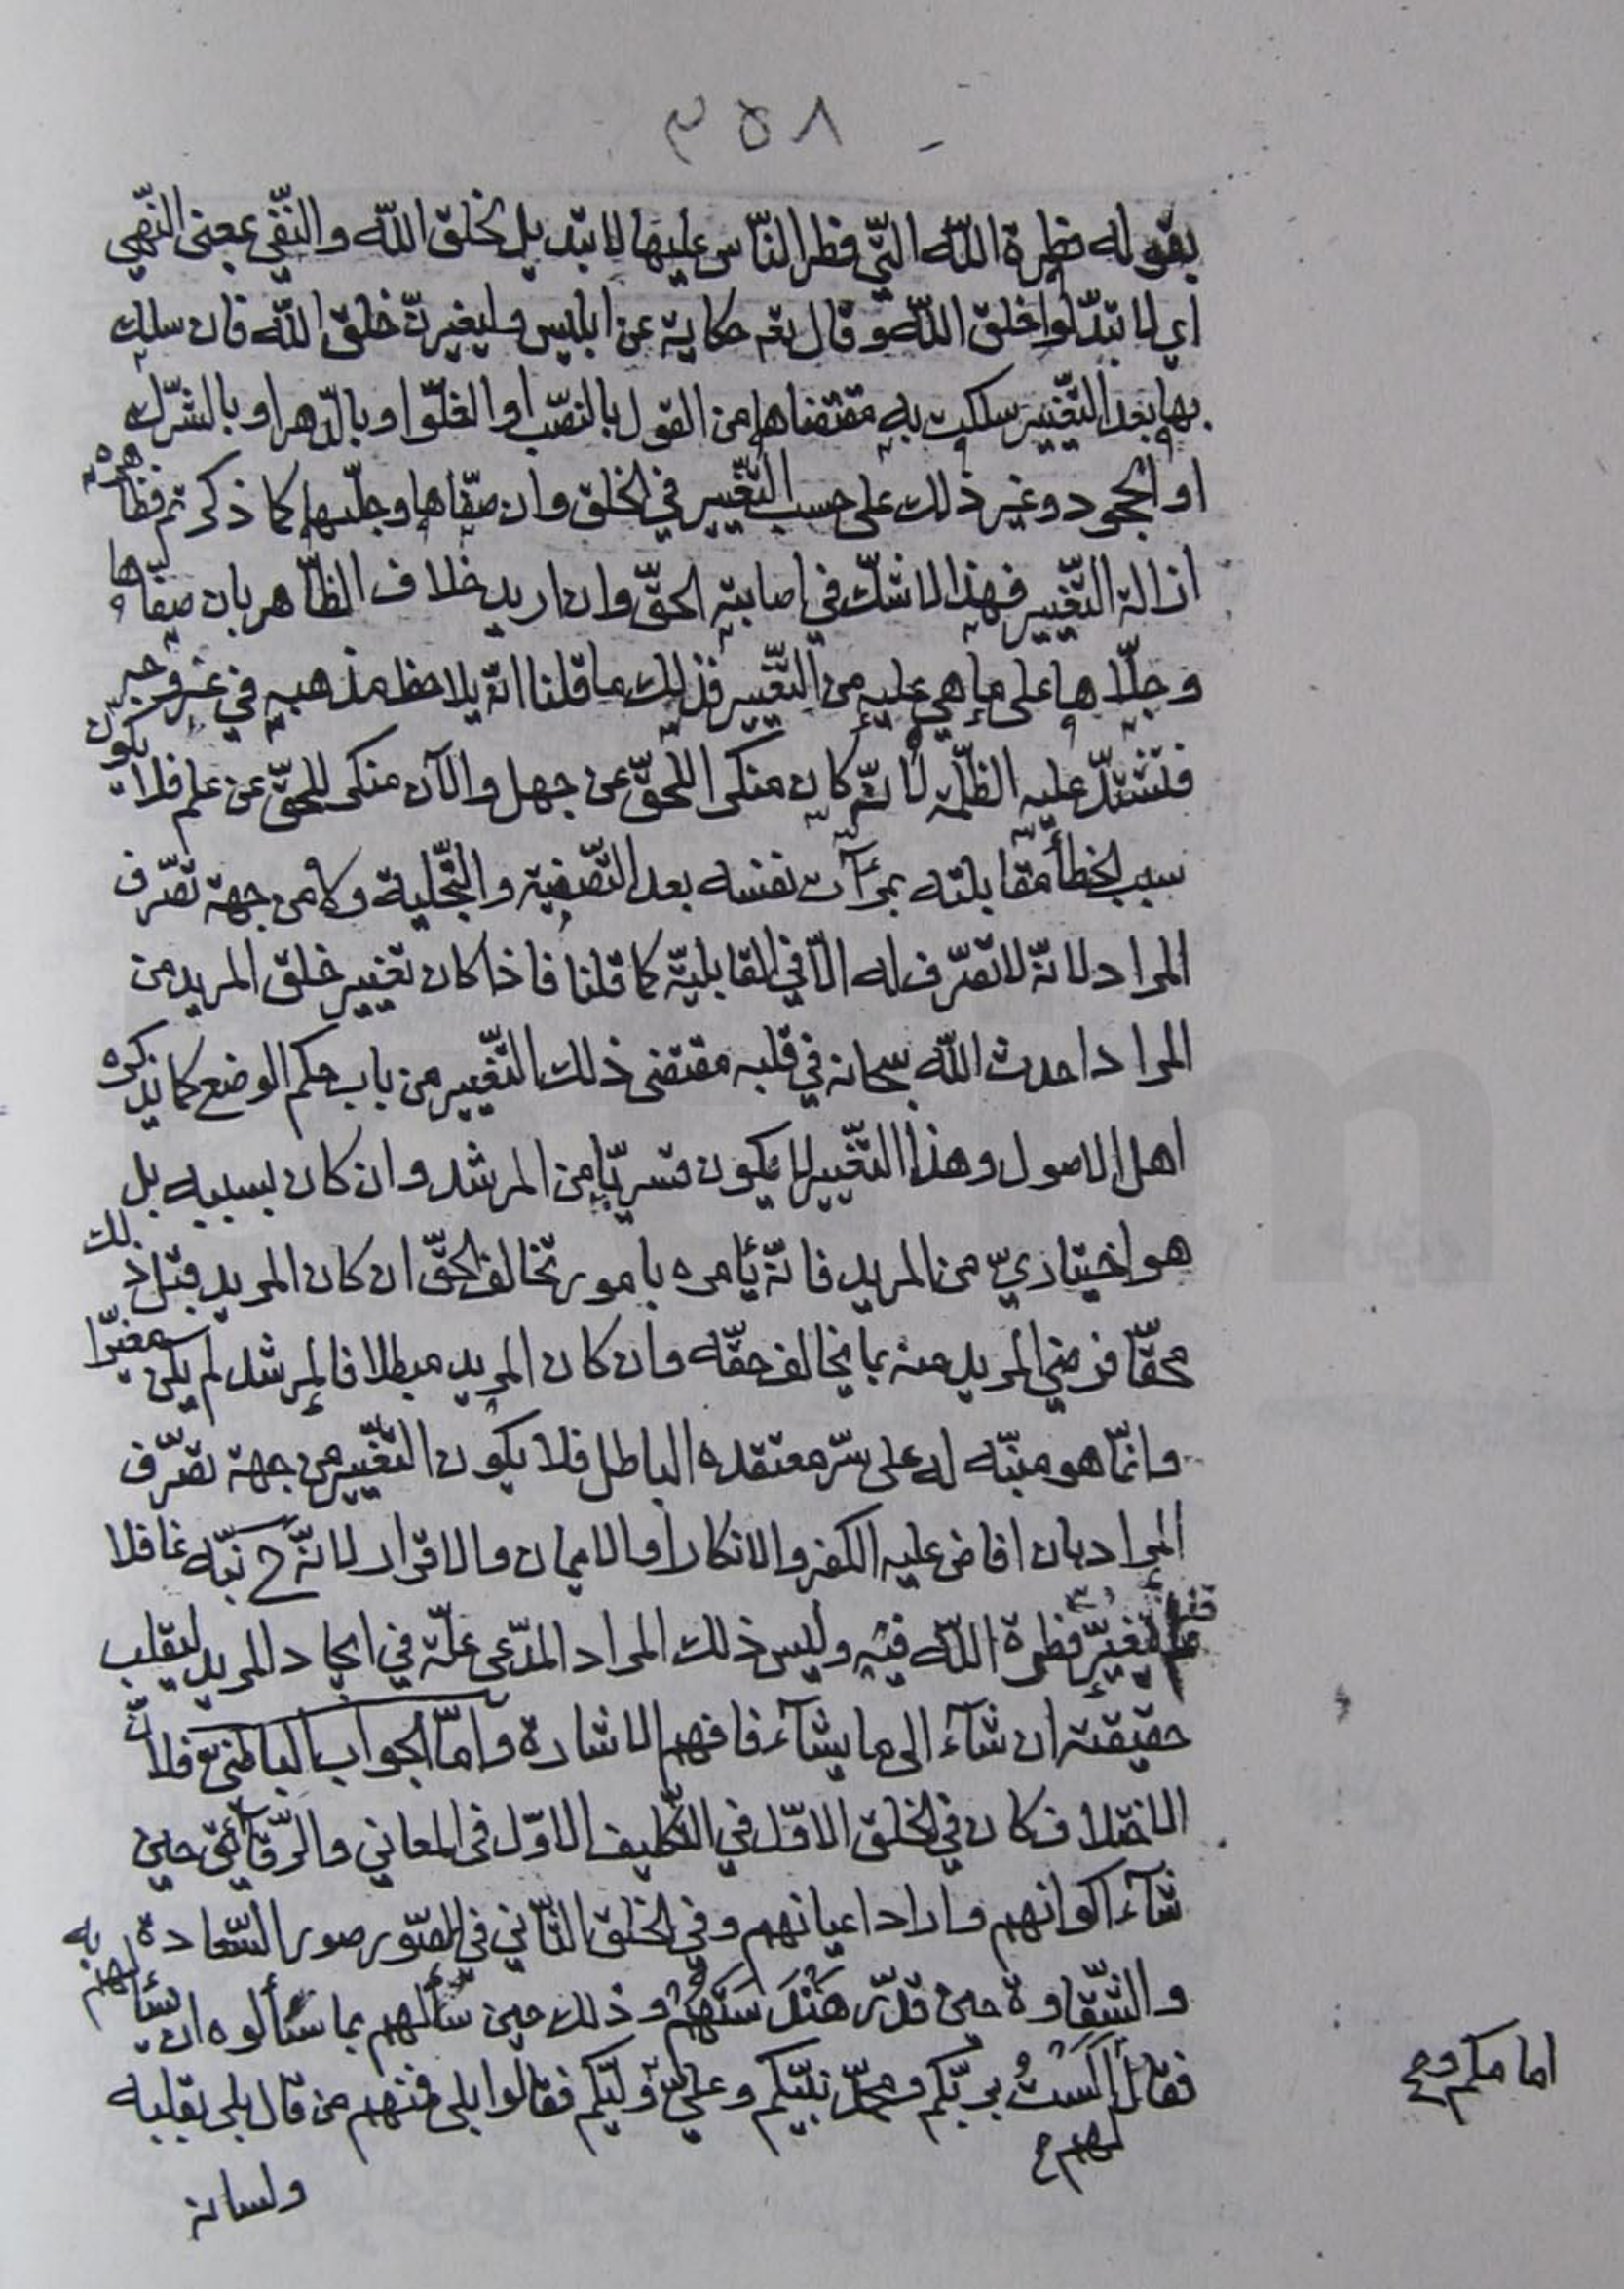 ٣٥٨
بقوله فطرة اللّه الّتي فطر النّاس عليها لا تبديل لخلق اللّه والنّفي بمعنى النّهي
اي لا تبدّلوا خلق اللّه وقال تعـ حكاية عن ابليس وليغيرنّ خلق اللّه فان سلك
بها بعد التّغيير سلكت به مقتضاها من القول بالنّصب او الغلّو او بالدّهر او بالشّرك
او الجحود وغير ذلك على حسب التّغيير في الخلق وان صفّاها وجلّيها كما ذكرتم فظاهره
ازالة التّغيير فهذا لا شكّ في اصابته الحقّ وان اريد خلاف الظّاهر بان صفّاها
وجلّاها على ما هي عليه من التّغيير فذلك ما قلنا انّه يلاحظ مذهبه في
فتشتدّ عليه الظّلمة لانّه كان منكرا للحقّ عن جهل والآن منكر للحقّ عن علم فلا تكون
سبب الخطأ مقابلته بمرآت نفسه بعد التّصفية والتّجلية ولا من جهة تصّرف
المراد لانّه لا تصّرف له الّا في القابليّة كما قلنا فاذا كان تغيير خلق المريد من
المراد احدث اللّه سبحانه في قلبه مقتضى ذلك التّغيير من باب حكم الوضع كما يذكره
اهل الاصول وهذا التّغيير لا يكون قسريّا من المرشد وان كان بسببه بل
هو اختياريّ من المريد فانّه يأمره بامور تخالف الحقّ ان كان المريد قبل ذلك
محقّا فرضي المريد منه بما يخالف حقّه وان كان المريد مبطلا فالمرشد لم يكن مغيّرا
وانّما هو منبّه له على سرّ معتقده الباطل فلا يكون التّغيير من جهة تصّرف
المراد بان افاض عليه الكفر والانكار او الايمان والاقرار لانّه ح نبّه غافلا
تغيّر فطرة اللّه فيه وليس ذلك المراد المدّعى علّة في ايجاد المريد ليقلب
حقيقته ان شآء الى ما يشآء فافهم الاشارة وامّا الجواب الباطني فلانّ
الاختلاف كان في الخلق الاوّل في التّكليف الاوّل في المعاني والرّقآئق حين
شآء اكوانهم واراد اعيانهم وفي الخلق الثّاني في الصّور صور السّعادة
والشّقاوة حين قدّر هندستهم وذلك حين سألهم بما سألوه ان يسألهم به
فقال لهم ألست بربّكم ومحمّد نبيّكم وعليّ وليّكم فقالوا بلى فمنهم من قال بلى بقلبه
امامكم
ولسانه